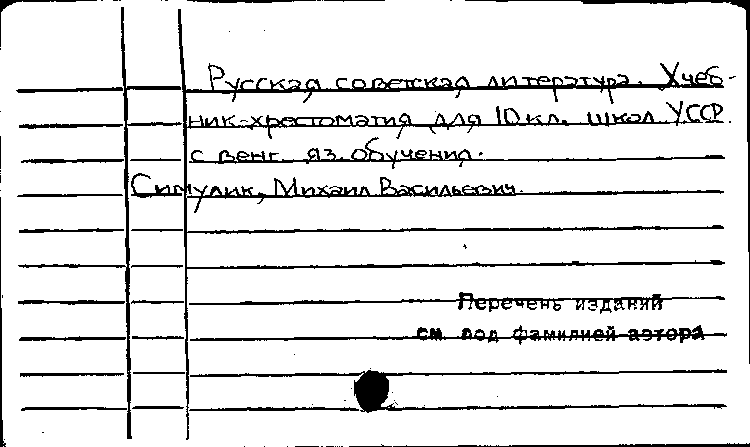 Русская советская литература. Учеб-
ник-хрестоматия для 10 кл. школ УССР
с венг. яз. обучения.
Симулик, Михаил Васильевич.
Перечень изданий
см. под фамилией автора